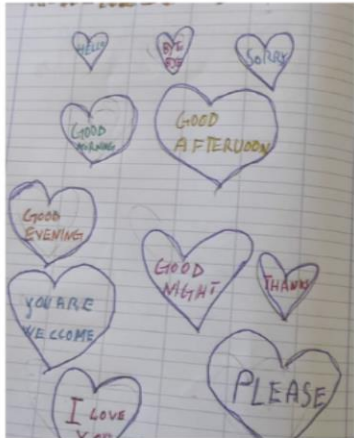 HELLO
BYE
BYE
SORRY
GOOD
MORNING
GOOD
AFTERUOON
GOOD
EVENING
GOOD
NIGHT
THANKS
YOU ARE
WELCOME
PLEASE
I LOVE
YOU